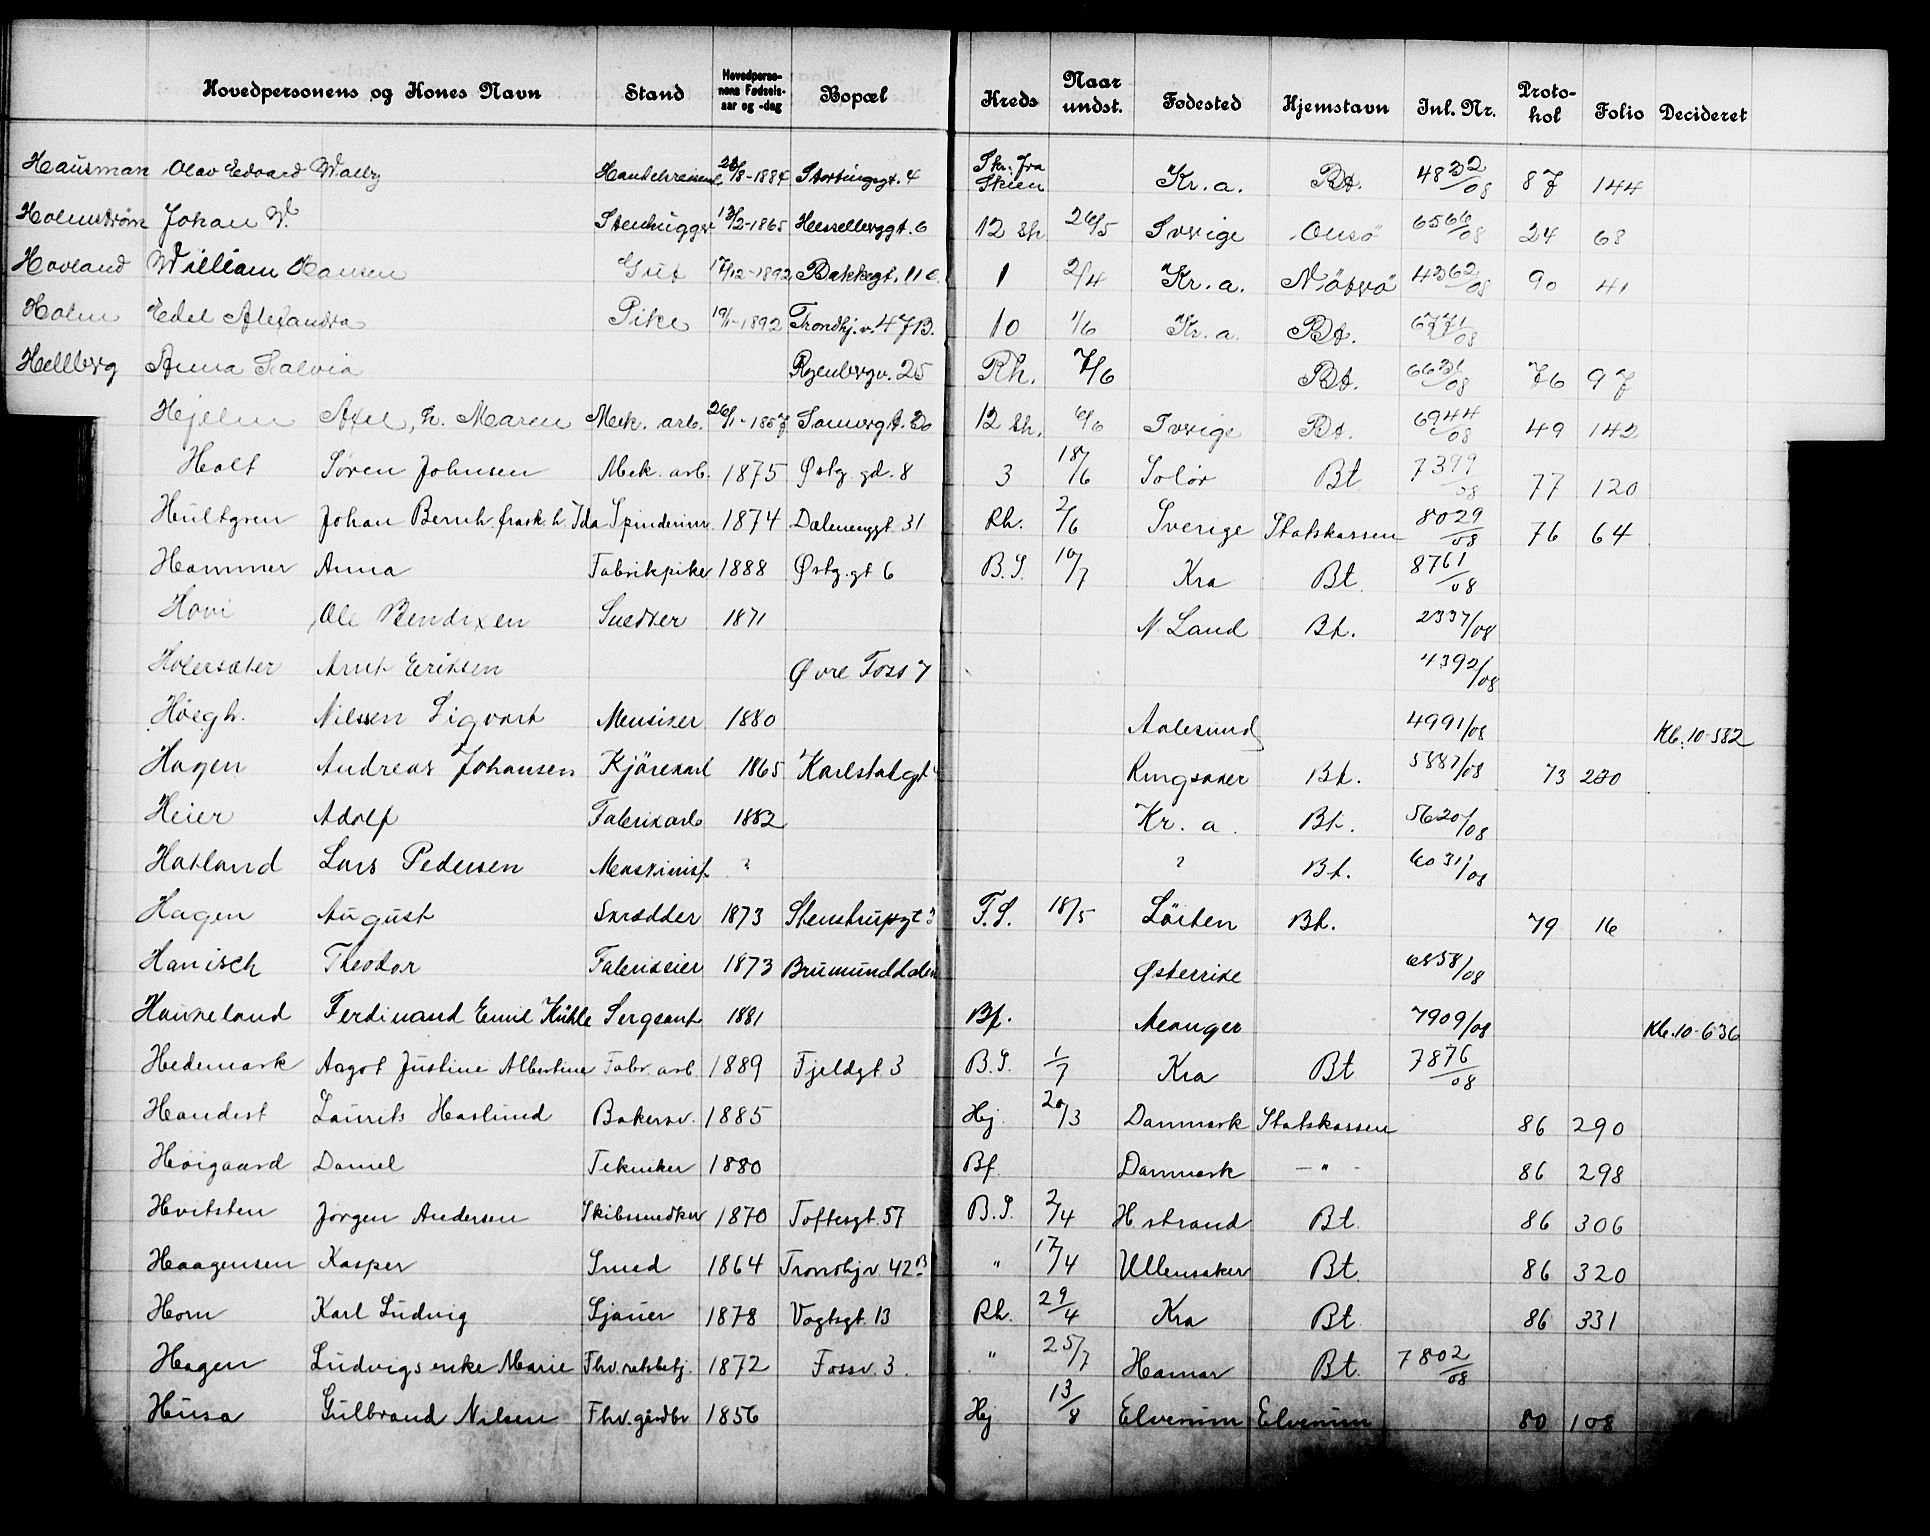 Hovedpersonens og Kones Navn Stand Hovedperso-nens Fødsels-aar og -dag Bopæl Kreds Naar undst. Fødested Hjemstavn Inl. Nr. Proto-kol Folio Decideret
Hausman Olav Edvard Wally 28/8-1884 Stortingsgt. 4 Skr. fra Skien Kr.a. Bt. 4832/08 87 144
Holmstrøm Johan W. Stenhugger 13/2-1865 Hesselberggt. 6 12 Sk. 26/5 Sverige Onsö 6566/08 24 68
Hovland William Hansen Gut 17/12-1892 Bakkegt. 11 c. 1 2/4 Kr.a. Nötterö 4362/08 90 41
Holm Edel Alexandra Pike 19/1-1892 Trondhj.v. 47B. 10 1/6 Kr.a. Bt. 6771/08
Hellberg Anna Salvia Rosenbergv. 25 Rh. 7/6 Bt. 6631/08 76 97
Hjelm Axel, h. Maren Mek. arb. 26/1-1857 Sannergt. 20 12 Sk. 6/6 Sverige Bt. 6944/08 49 142
Holt Søren Johnsen Mek. arb. 1875 Østg. gd. 8 3 18/6 Solør Bt 7399/08 77 120
Hultgren Johan Bernh. frask. h. Ida Spinderim. 1874 Dælenenggt. 31 Rh. 2/6 Sverige Statskassen 8029/08 76 64
Hammer Anna Fabrikpike 1888 Østg. gt 6 B.S. 10/7 Kra Bt. 8761/08
Hovi Ole Bendixen Snedker 1871 N. Land Bt. 2337/08
Holersæter Arnt Eriksen Øvre Foss 7 4392/08
Höegh. Nilssen Sigvart Musiker 1880 Aalesund 4991/08 Kb. 10-582
Hagen Andreas Johansen Kjörekarl 1865 Karlstadgt Ringsaker Bt. 5887/08 73 270
Heier Adolf Fabrikarb 1882 Kr. a. Bt. 5620/08
Hatland Lars Pedersen Maskinist ? ? Bt. 6031/08
Hagen August Skrædder 1873 Stenstrupgt 3 F.S. 18/5 Löiten Bt. 79 16
Hanisch Theodor Fabrikeier 1873 Brumunddalen Østerrike 6858/08
Haukeland Ferdinand Emil Kühle Sergeant 1881 Bf. Manger 7909/08 Kb. 10-636
Hedemark Aagot Justine Albertine Fabr. arb. 1889 Fjeldgt. 3 B.S. 1/7 Kra Bt 7876/08
Handest Laurits Haslund Bakersv. 1885 Hej 20/3 Danmark Statskassen 86 290
Høigaard Daniel Tekniker 1880 Bf. Danmark - " - 86 298
Hvitsten Jørgen Andersen Skibssnedker 1870 Toftesgt. 57 B.S. 2/4 H.strand Bt. 86 306
Haagensen Kasper Smed 1864 Trondhjv 42B " 17/4 Ullensaker Bt. 86 320
Horn Karl Ludvig Sjauer 1878 Vogtsgt. 13 Rh. 29/4 Kra Bt. 86 331
Hagen Ludvigs enke Marie Fhv. 1872 Fossv. 3. " 25/7 Hamar Bt. 7802/08
Husa Gulbrand Nilsen Fhv. gårdbr 1856 Hej 13/8 Elverum Elverum 80 108